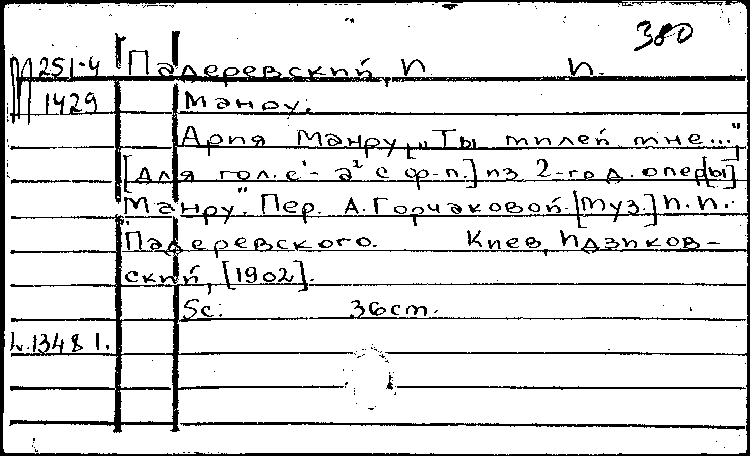 380
М 251-4 Падеревский, И И.
1429 Манру.
Ария Манру, „Ты милей мне...“,
[для гол. е¹- а² с ф-п.] из 2-го д. опер[ы]
„Манру“. Пер. А. Горчаковой. [Муз.] И. И.
Падеревского. Киев, Идзиков-
ский, [1902].
5с. 36см.